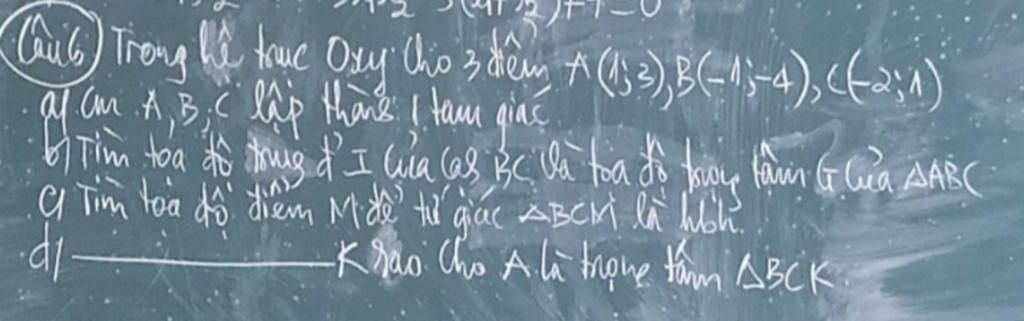 Câu 6) Trong hệ trục Oxy Cho 3 điểm A(1;3), B(-1;-4), C(-2;1)
a) Cm A, B, C lập thành 1 tam giác
b) Tìm tọa độ trung đ' I Của Cạnh BC Và tọa độ trọng tâm G Của ΔABC
c) Tìm tọa độ điểm M để tứ giác ABCM là hbh.
d) ——— K sao Cho A là trọng tâm ΔBCK.